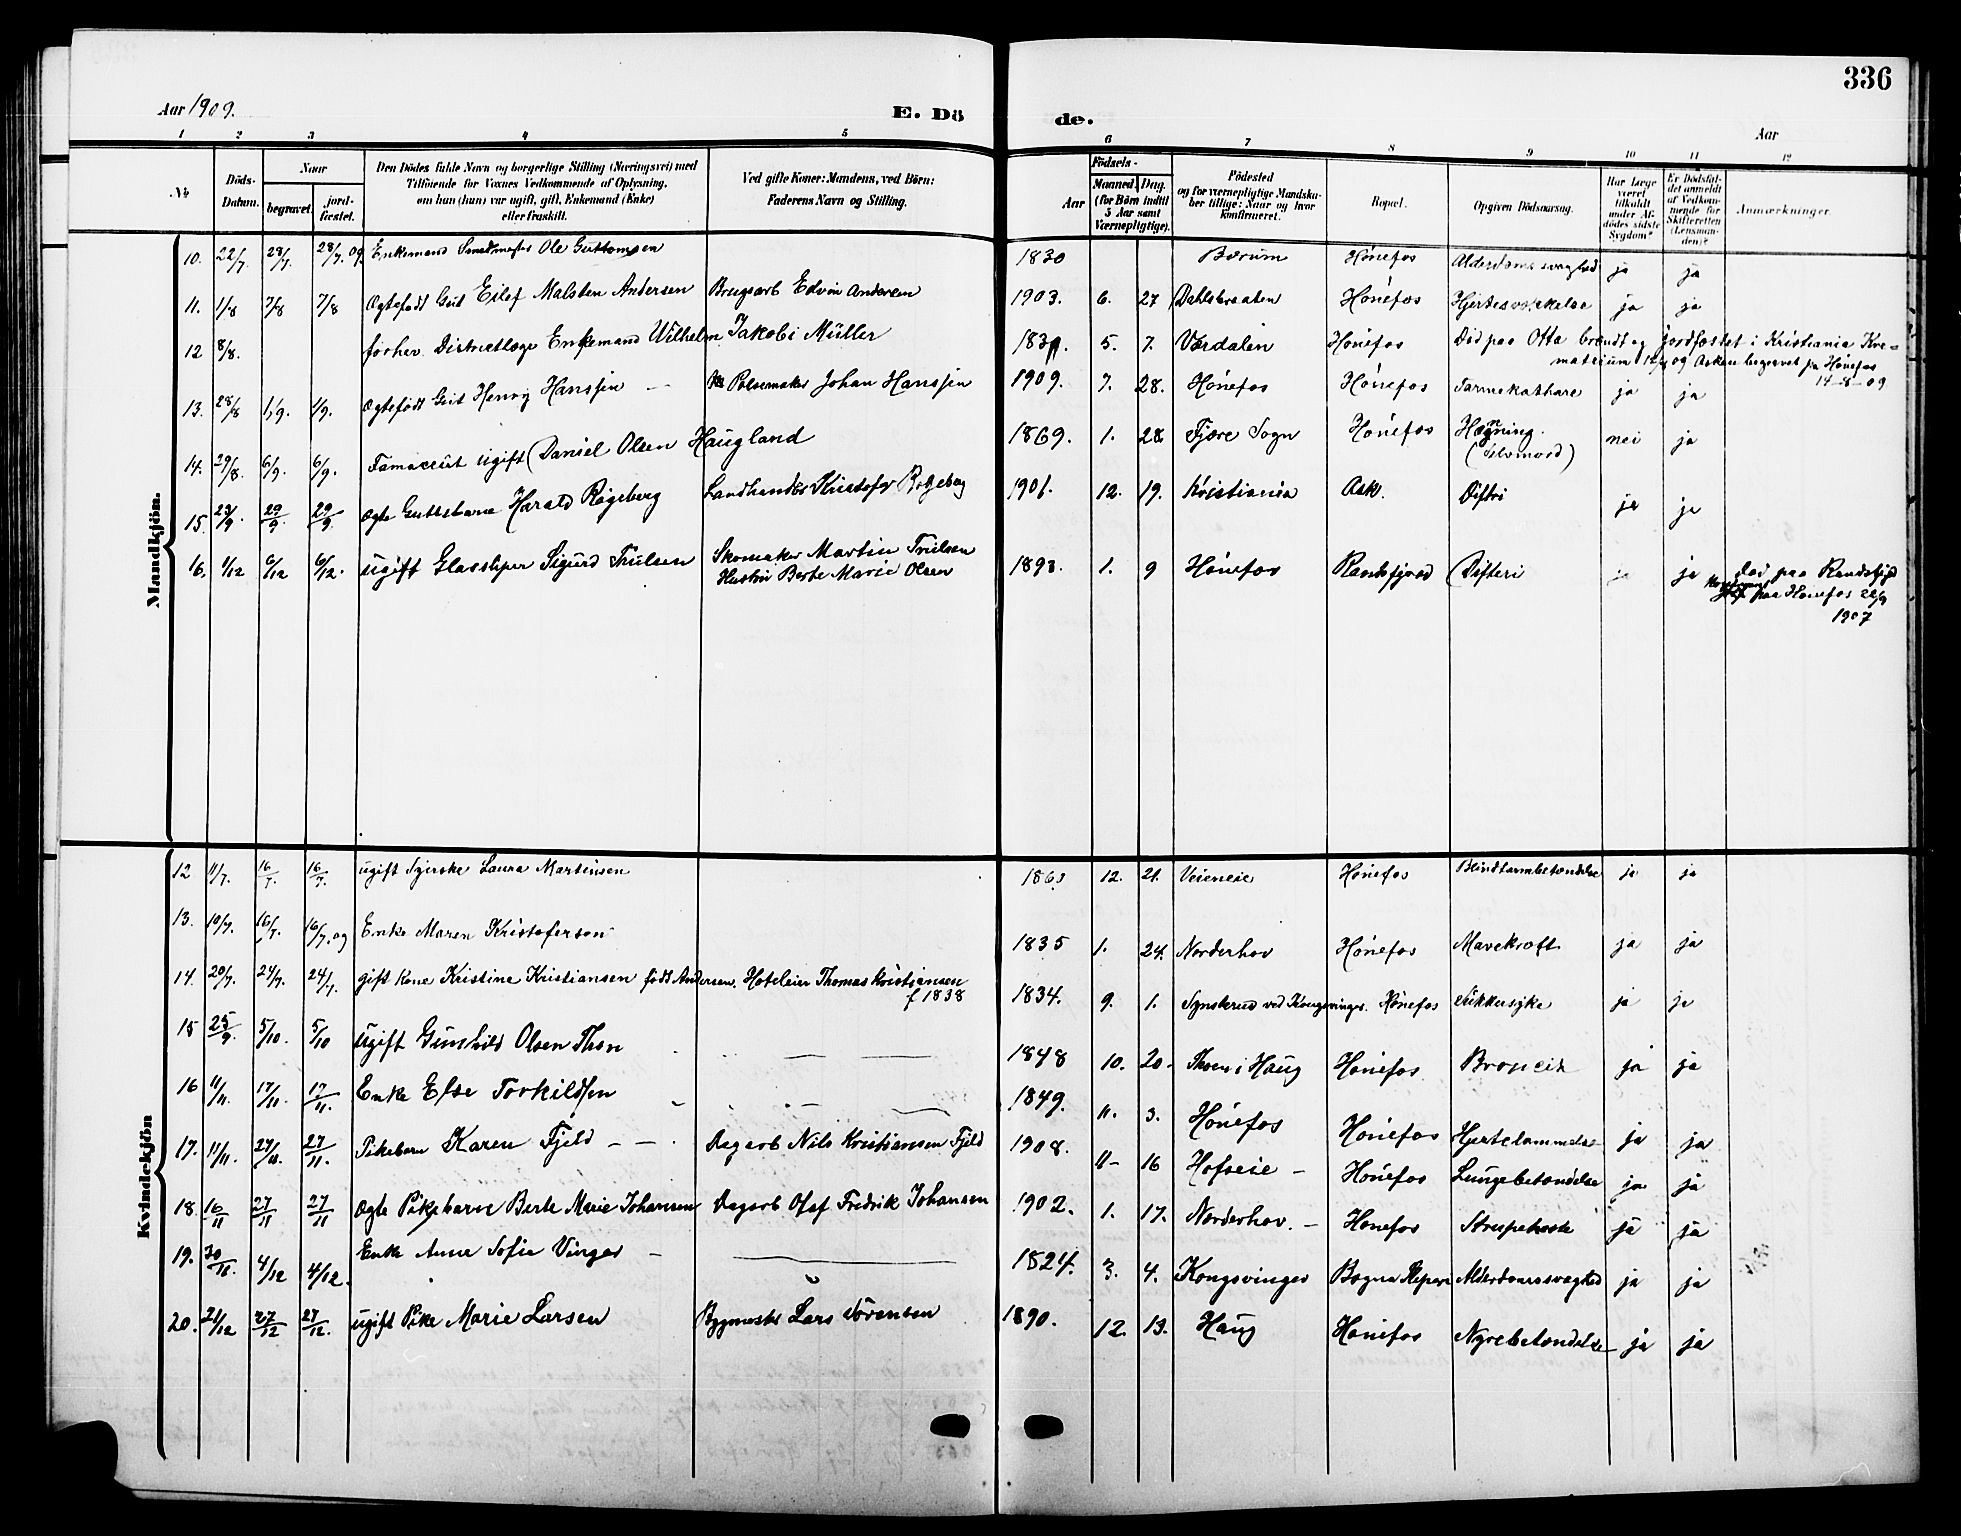 336
Aar 1909.
E. Dö
de.
Aar
1 2 3 4 5 6 7 8 9 10 11 12
No
Döds-Datum.
Naar
begravet.
jord-fæstet.
Den Dödes fulde Navn og borgerlige Stilling (Næringsvei) med
Tilföiende for Voxnes Vedkommende af Oplysning,
om hun (hun) var ugift, gift, Enkemand (Enke)
eller fraskilt.
Ved gifte Koner: Mandens, ved Börn:
Faderens Navn og Stilling.
Födsels-
Aar
Maaned. Dag.
(for Börn indtil
5 Aar samt
Værnepligtige).
Födested
og for værnepligtige Mandska-
ber tillige: Naar og hvor
konfirmeret.
Bopæl.
Opgiven Dödsaarsag.
Har Læge
været
tilkaldt
under Af-
dödes sidste
Sygdom?
Er Dödsfal-
det anmeldt
af Vedkom-
mende for
Skifteretten
(Lensman-
den)?
Anmærkninger.
Mandkjön.
10. 22/7. 28/7. 28/7. 09. Enkemand Ole Guttomsen 1830 Bærum Hönefos Alderdomssvaghed ja ja
11. 1/8 7/8 7/8 Ægtefödt Gut Eilef Malsten Andersen Brugsarb Edvin Andersen 1903. 6. 27 Dahlsbraaten Hönefos ja ja
12 8/8. forhev. Districtlæge Enkemand Wilhelm Jakobi Müller 5. 7. Værdalen Hönefos Död paa Otta brændt og jordfæstet i Kristiania Kre-
matorium 12/8 09 Asken begravet paa Hönefos
14-8-09
13. 28/8 1/9. 1/9. Ægtefödt Gut Henry Hanssen Pölsemaker Johan Hanssen 1909. 7. 28. Hönefos Hönefos Tarmekathare ja ja
14. 29/8. 6/9. 6/9. ugift Daniel Olsen Haugland 1869. 1. 28 Fjære Sogn Hönefos Hængning.
(Selvmord) nei ja
15. 29/9. 29/9. Ægte Guttebarn Harald Rögeberg Landhandler 1901. 12. 19. Kristiania Ask. Difteri ja ja
16. 1/12 6/12 6/12. ugift Glassliper Sigurd Trulsen Skomaker Martin Trulsen
Hustru Berte Marie Olsen 1893. 1. 9 Hönefos Randsfjord Difteri ja ja Död paa Randsfjord
paa Hönefos 22/9
1907
Kvindekjön
12 11/7. 16/7. 16/7. ugift Syerske Laura Martinsen 12. 21. Veieneie Hönefos Blindtarmbetændelse ja ja
13. 10/7. 16/7. 16/7. 09 Enke Maren Kristofersen 1835 1. 24. Norderhov Hönefos Mavekræft ja ja
14. 20/7. 24/7. 24/7. gift Kone Kristine Kristiansen födt Andersen. Hoteleier Thomas Kristiansen
f 1838 1834. 9. 1. ved Kongsvinger. Hönefos Sukkersyke ja ja
15 25/9. 5/10. 5/10 ugift Gunhild Olsen Thon 1848 10. 20. Thon i Haug Hönefos ja ja
16 11/11. 17/11. 17/11. Enke Else Torkildsen 1849. 11. 3. Hönefos Hönefos Hjertelammelse ja ja
17. 11/11. 27/11. 27/11. Pikebarn Karen Fjeld Dagarb Nils Kristiansen Fjeld 1908. 11 16 Hofseie Hönefos Lungebetændelse ja ja
18. 16/11 27/11 27/11 Ægte Pikebarn Berte Marie Johansen Dagarb Olaf Fredrik Johansen 1902. 1. 17. Norderhov. Hönefos Strupehoste ja ja
19. 30/11. 4/12 4/12. Enke Anne Sofie Vinger 1824. 3. 4. Kongsvinger Alderdomssvaghed ja ja
20. 21/12 27/12 27/12. ugift Pike Marie Larsen Bygmester Lars Sörensen 1890. 12. 13. Haug Hönefos Nyrebetændelse ja ja